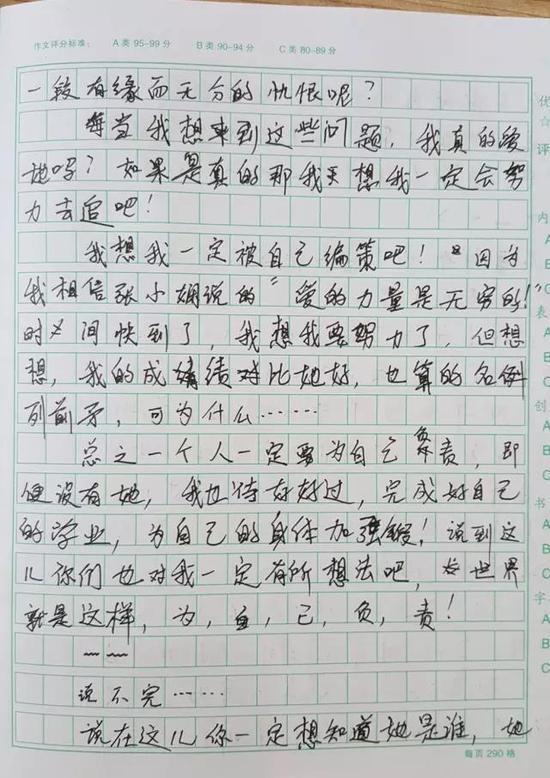 作文评分标准： A类95-99分 B类90-94分 C类80-89分
一段有缘而无分的仇恨呢？
每当我想来到这些问题，我真的爱
她吗？如果是真的那我天想我一定会努
力去追吧！
我想我一定被自己编策吧！因为
我相信张小娴说的“爱的力量是无穷的！”
时间快到了，我想我要努力了，但想
想，我的成绩对比她好，也算的名例
列前矛，可为什么……
总之一个人一定要为自己负责，即
便没有她，我也待好好过，完成好自己
的学业，为自己的身体加强锻！说到这
儿你们也对我一定有所想法吧，世界
就是这样，为，自，己，负，责！
~~
说不完……
说在这儿你一定想知道她是谁，她
每页290格
优
☆
评
内
A
B
C
表
A
B
C
创
A
B
C
书
A
字
A
B
C